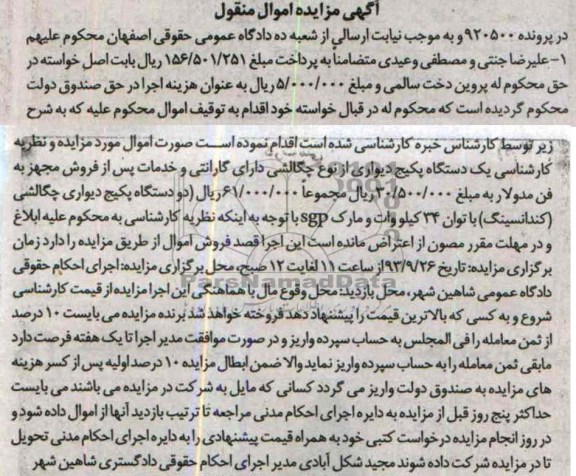 آگهی مزایده اموال منقول
در پرونده ۹۲۰۵۰۰ و به موجب نیابت ارسالی از شعبه ده دادگاه عمومی حقوقی اصفهان محکوم علیهم
۱-علیرضا جنتی و مصطفی وعیدی متضامناً به پرداخت مبلغ ۱۵۶/۵۰۱/۲۵۱ ریال بابت اصل خواسته در
حق محکوم له پروین دخت سالمی و مبلغ ۵/۰۰۰/۰۰۰ ریال به عنوان هزینه اجرا در حق صندوق دولت
محکوم گردیده است که محکوم له در قبال خواسته خود اقدام به توقیف اموال محکوم علیه که به شرح
زیر توسط کارشناس خبره کارشناسی شده است اقدام نموده است صورت اموال مورد مزایده و نظریه
کارشناسی یک دستگاه پکیج دیواری از نوع چگالشی دارای گارانتی و خدمات پس از فروش مجهز به
فن مدولار به مبلغ ۳۰/۵۰۰/۰۰۰ ریال مجموعاً ۶۱/۰۰۰/۰۰۰ ریال (دو دستگاه پکیج دیواری چگالشی
(کندانسینگ) با توان ۳۴ کیلو وات و مارک sgp با توجه به اینکه نظریه کارشناسی به محکوم علیه ابلاغ
و در مهلت مقرر مصون از اعتراض مانده است این اجرا قصد فروش اموال از طریق مزایده را دارد زمان
برگزاری مزایده: تاریخ ۹۳/۹/۲۶ از ساعت ۱۱ لغایت ۱۲ صبح، محل برگزاری مزایده: اجرای احکام حقوقی
دادگاه عمومی شاهین شهر، محل بازدید: محل وقوع مال با هماهنگی این اجرا مزایده از قیمت کارشناسی
شروع و به کسی که بالاترین قیمت را پیشنهاد دهد فروخته خواهد شد برنده مزایده می بایست ۱۰ درصد
از ثمن معامله را فی المجلس به حساب سپرده واریز و در صورت موافقت مدیر اجرا تا یک هفته فرصت دارد
مابقی ثمن معامله را به حساب سپرده واریز نماید والا ضمن ابطال مزایده ۱۰ درصد اولیه پس از کسر هزینه
های مزایده به صندوق دولت واریز می گردد کسانی که مایل به شرکت در مزایده می باشند می بایست
حداکثر پنج روز قبل از مزایده به دایره اجرای احکام مدنی مراجعه تا ترتیب بازدید آنها از اموال داده شود و
در روز انجام مزایده درخواست کتبی خود به همراه قیمت پیشنهادی را به دایره اجرای احکام مدنی تحویل
تا در مزایده شرکت داده شوند مجید شکل آبادی مدیر اجرای احکام حقوقی دادگستری شاهین شهر
ParsNamadData